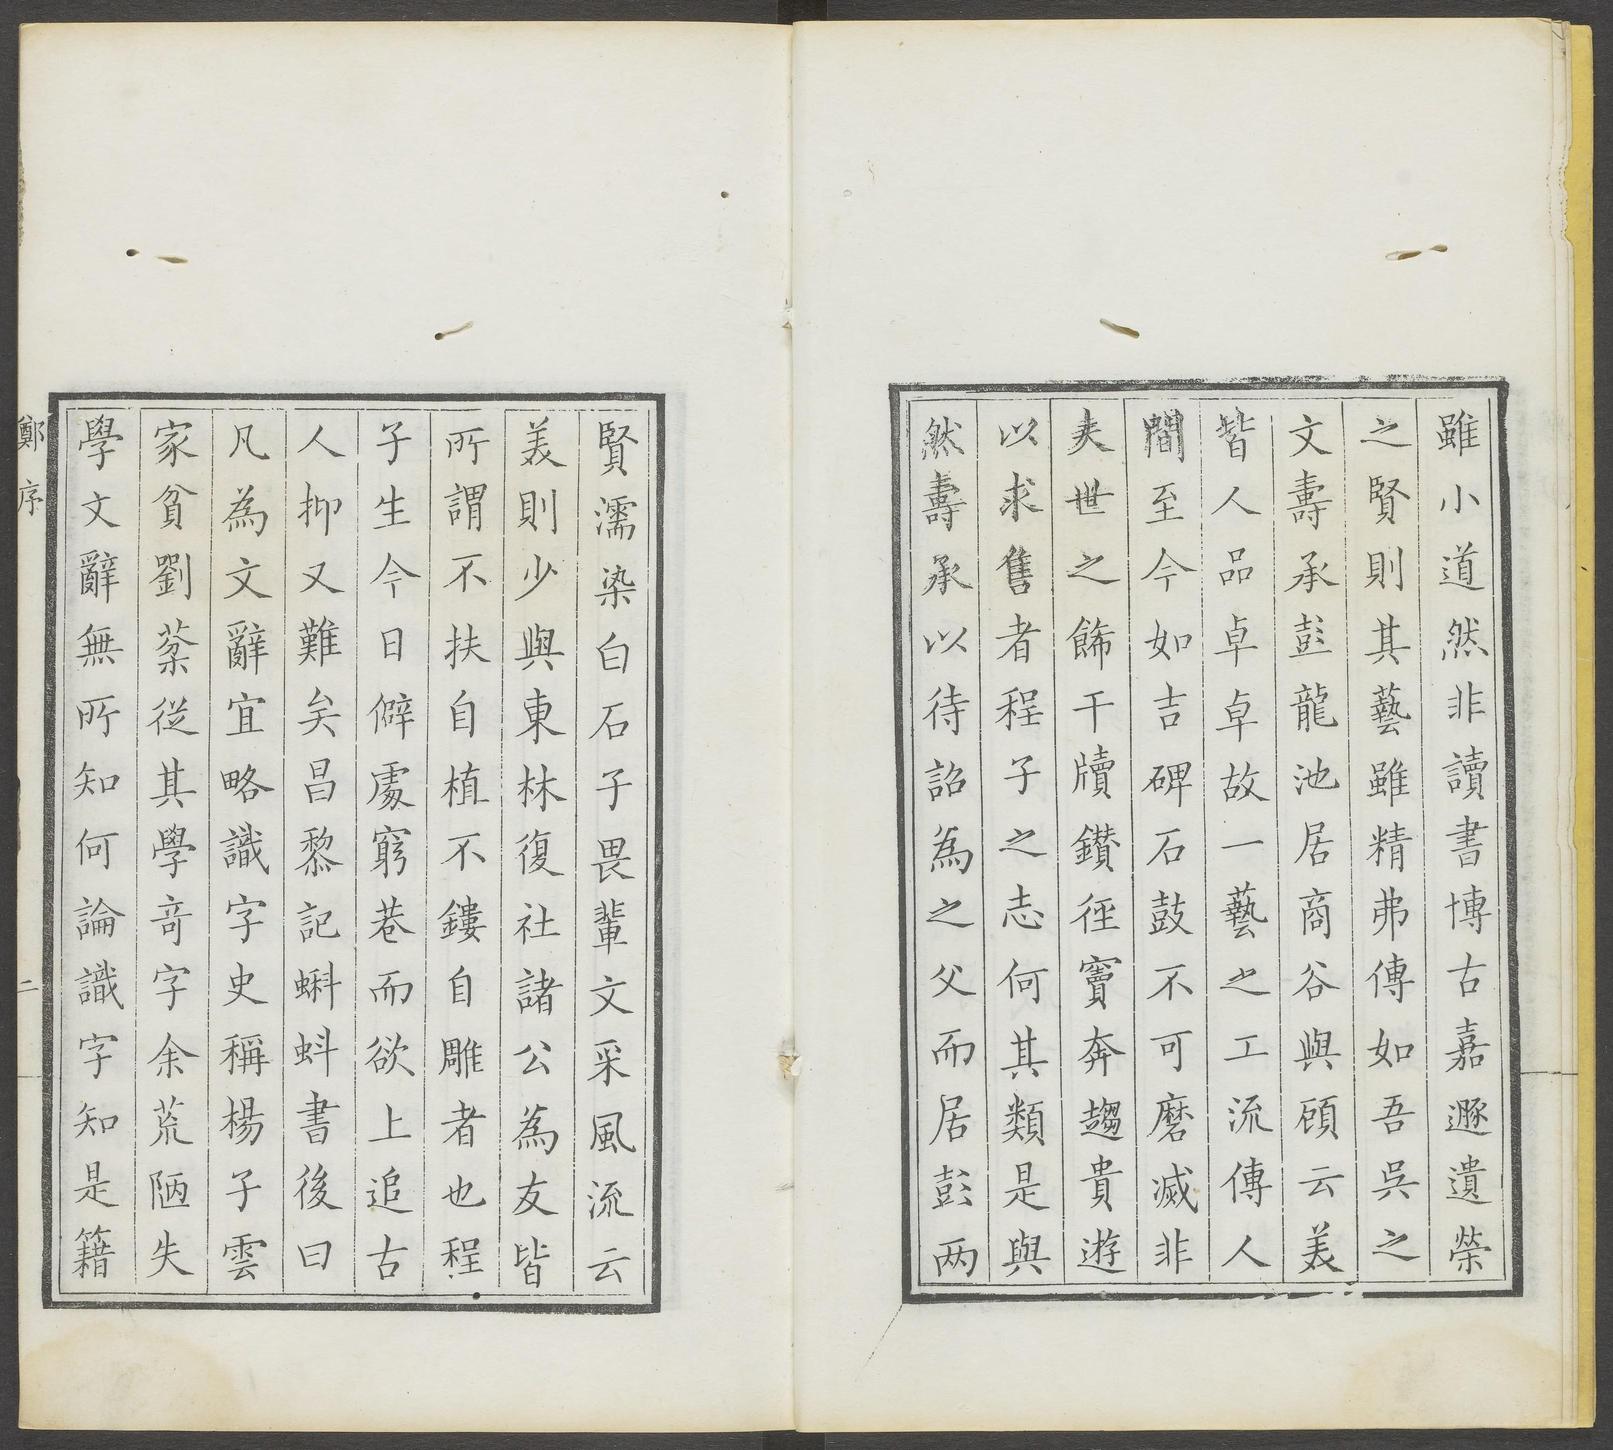 雖小道然非讀書博古嘉遯遺榮
之賢則其藝雖精弗傳如吾吳之
文壽承彭龍池居商谷與顧云美
皆人品卓卓故一藝之工流傳人
間至今如吉碑石鼓不可磨滅非
夫世之飾干牘鑽徑竇奔趨貴遊
以求售者程子之志何其類是與
然壽承以待詔為之父而居彭兩
賢濡染白石子畏輩文采風流云
美則少與東林復社諸公為友皆
所謂不扶自植不鏤自雕者也程
子生今日僻處窮巷而欲上追古
人抑又難矣昌黎記蝌蚪書後曰
凡為文辭宜略識字史稱楊子雲
家貧劉棻從其學奇字余荒陋失
學文辭無所知何論識字知是籍
鄭序
二